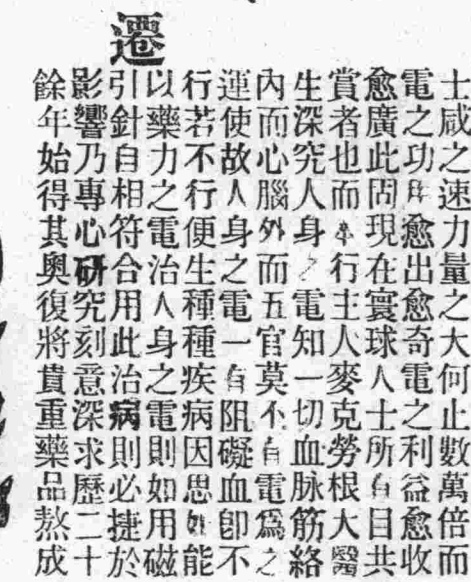 遷
士咸之速力量之大何止數萬倍而
電之功用愈出愈奇電之利益愈收
愈廣此固現在寰球人士所有目共
賞者也而本行主人麥克勞根大醫
生深究人身之電知一切血脉筋絡
內而心腦外而五官莫不有電爲之
運使故人身之電一有阻礙血卽不
行若不行便生種種疾病因思如能
以藥力之電治人身之電則如用磁
引針自相符合用此治病則必捷於
影響乃專心研究刻意深求歷二十
餘年始得其奧復將貴重藥品熬成